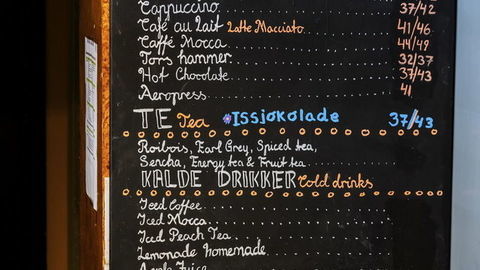 Cappuccino 37/42
Café au Lait Latte Macciato 41/46
Caffé Mocca 44/49
Tors hammer 32/37
Hot Chocolate 37/43
Aeropress 41
TE Tea *Issjokolade 37/43
Roibois, Earl Grey, Spiced tea,
Sencha, Energy tea & Fruit tea
KALDE DRIKKER Cold drinks
Iced Coffee
Iced Mocca
Iced Peach Tea
Lemonade homemade
Apple Juice